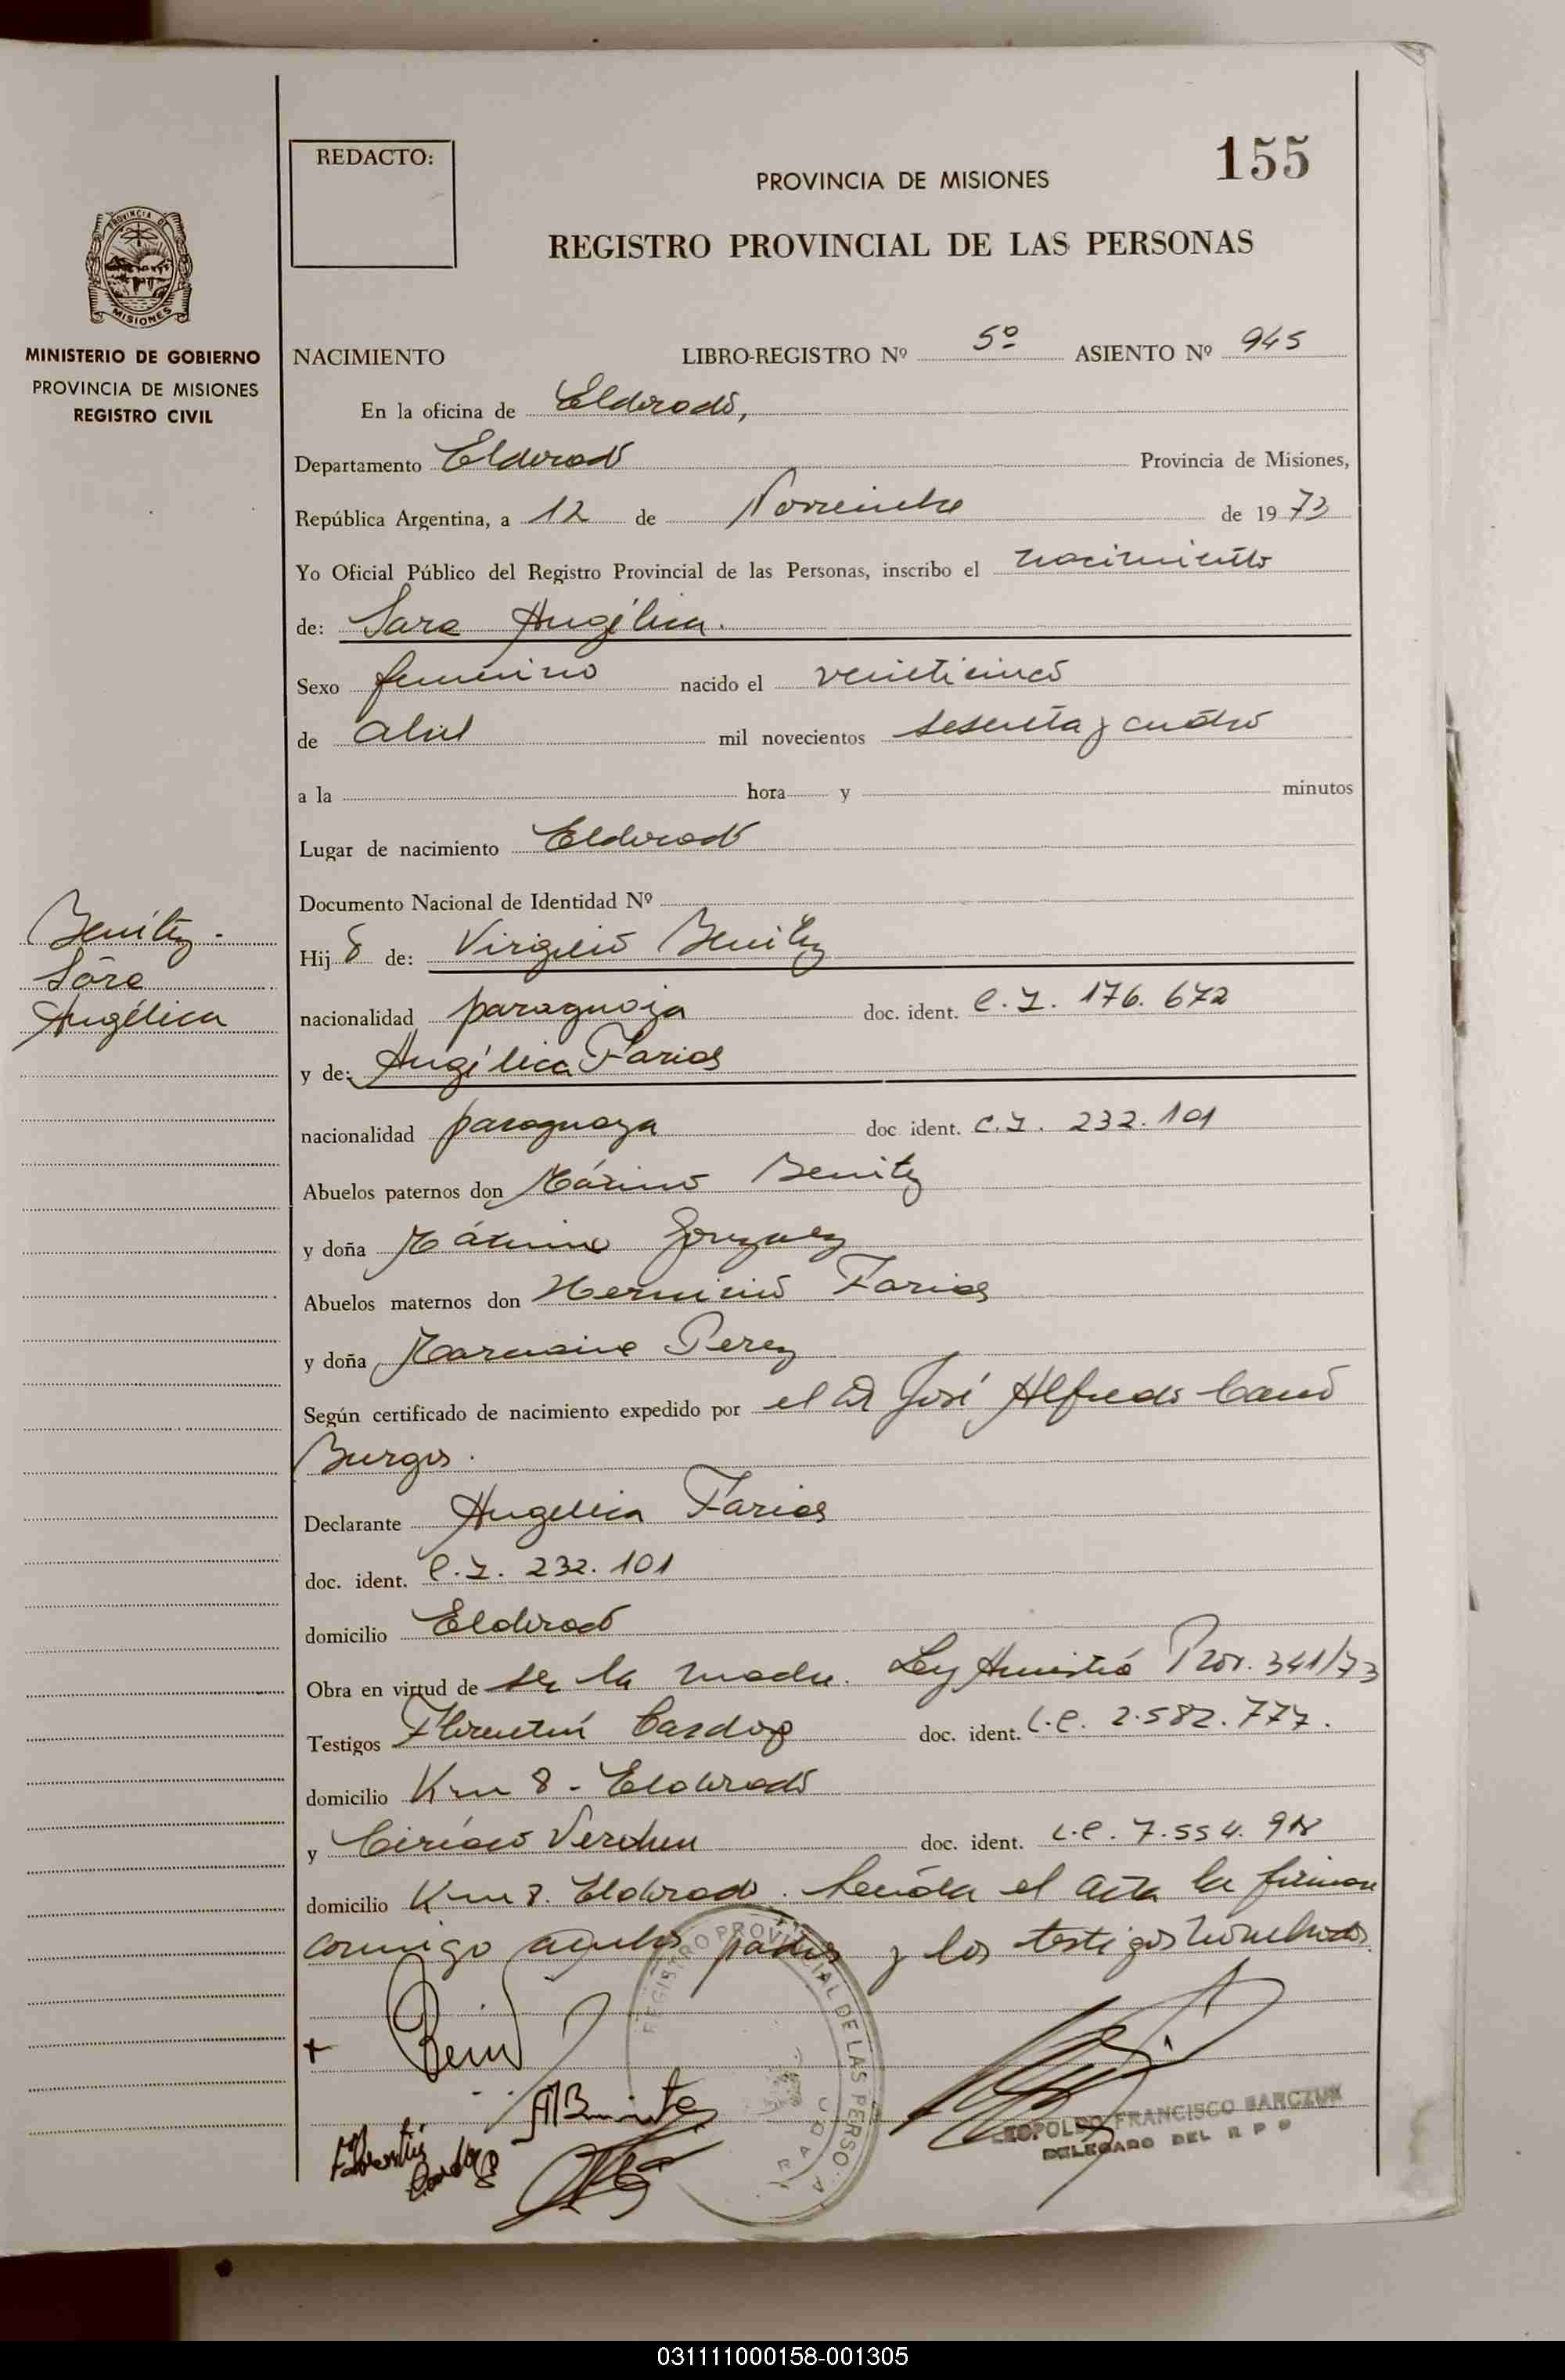 155
REDACTO:
PROVINCIA DE MISIONES
REGISTRO PROVINCIAL DE LAS PERSONAS
PROVINCIA DE MISIONES
MINISTERIO DE GOBIERNO
PROVINCIA DE MISIONES
REGISTRO CIVIL
NACIMIENTO LIBRO-REGISTRO Nº 5º ASIENTO Nº 945
En la oficina de Eldorado,
Departamento Eldorado Provincia de Misiones,
República Argentina, a 12 de Noviembre de 19 73
Yo Oficial Público del Registro Provincial de las Personas, inscribo el nacimiento
de: Sara Angélica.
Sexo femenino nacido el veinticinco
de abril mil novecientos sesenta y cuatro
a la hora y minutos
Lugar de nacimiento Eldorado
Documento Nacional de Identidad Nº
Benítez -
Sara
Angélica
Hij de: Virgilio Benitez
nacionalidad paraguaya doc. ident. C.I. 176.672
y de: Angélica Farias
nacionalidad paraguaya doc ident. C.I. 232.101
Abuelos paternos don Máximo Benitez
y doña Máxima Gonzalez
Abuelos maternos don Herminio Farias
y doña Perez
Según certificado de nacimiento expedido por el Dr José Alfredo Cano
Burgos.
Declarante Angelica Farias
doc. ident. C.I. 232.101
domicilio Eldorado
Obra en virtud de ser la madre. Ley Amnistía Prov. 341/73
Testigos Florentín Cardozo doc. ident. L.E. 2.582.777.
domicilio Km 8 - Eldorado
y Ciriaco Verdun doc. ident. L.E. 7.554.918
domicilio Km 8. Eldorado. Leída el acta la firman
conmigo ambos padres y los testigos nombrados.
REGISTRO PROVINCIAL DE LAS PERSO
Florentin
Cardozo
LEOPOLDO FRANCISCO BARCZUK
DELEGADO DEL R P P
031111000158-001305